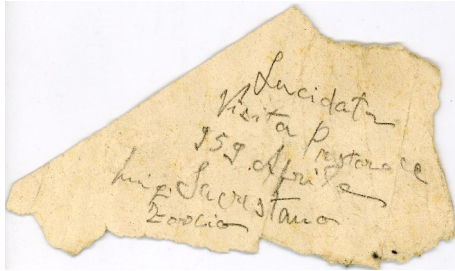 Lucidata
Visita Pastorale
959 Aprile
Luigi Sacrestano